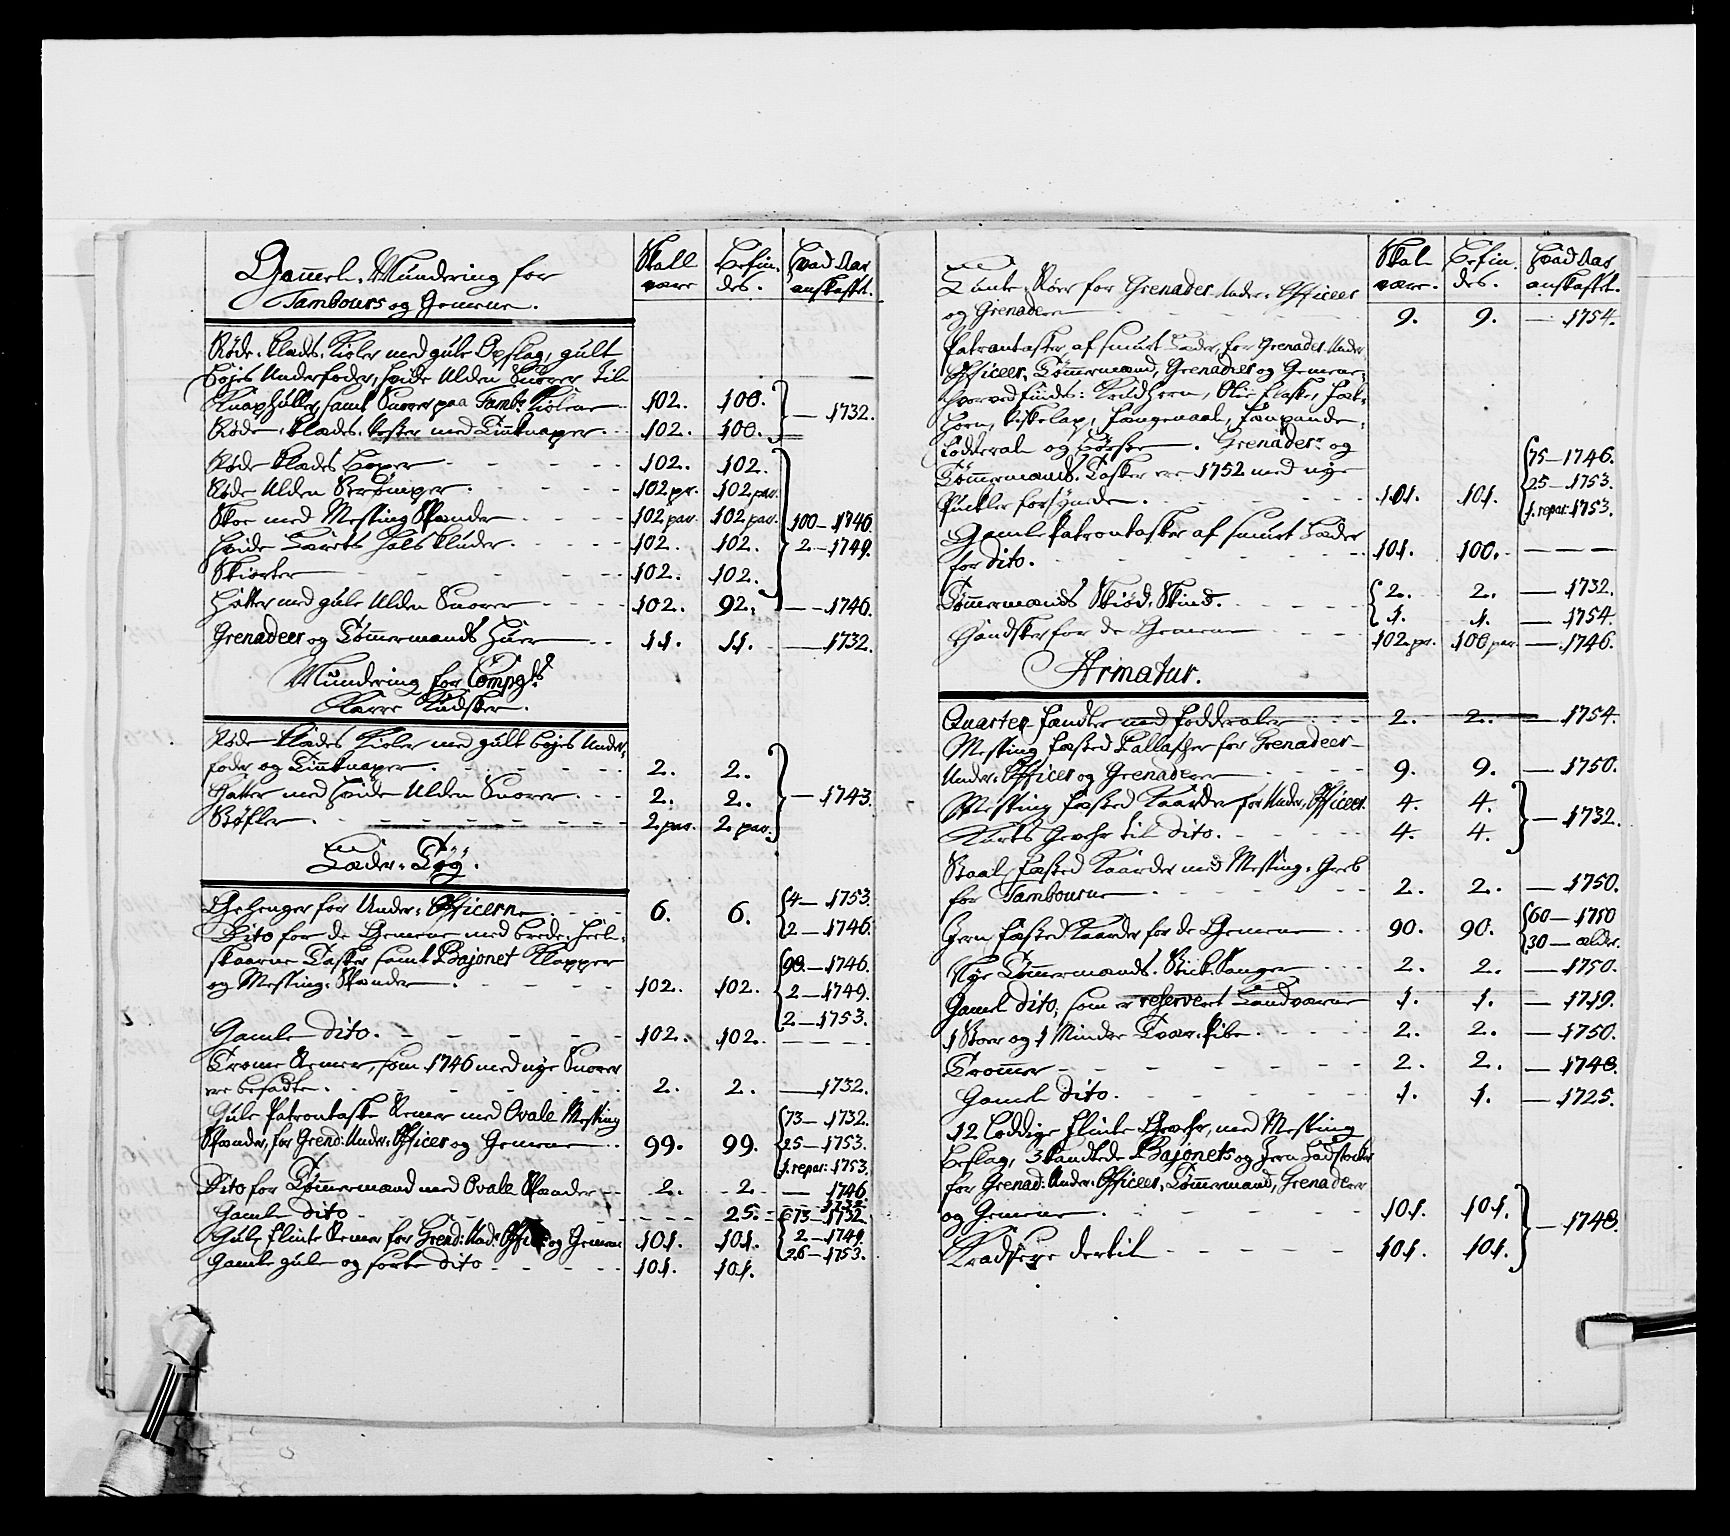 Gamel Mundering for
Tambours og Gemene.
Skall være
Befindes.
Hvad Aar anskaffet.
Røde Klædes Kioler med gule Opslag, gult
Bojes Underfoder, hvide Ulden Snorer til
Knaphuller, samt Snorer paa Tambr Kiolerne 102. 100.
Røde Klædes Vester med Tinknaper 102. 100. } — 1732.
Røde Klædes Boxer 102. 102.
Røde Ulden Strømper 102 pr. 102 par.
Skoe med Messing Spænder 102 par. 102 par. 100 — 1746
Hvide Lærets Halskluder 102. 102. 2 — 1749.
Skiorter 102. 102.
Hatter med gule Ulden Snorer 102. 92. — 1746.
Grenadeer og Tømmermands Huer 11. 11. — 1732.
Mundering for Compgts
Karre Kudsker.
Røde Klædes Kioler med gult Bojes Under,
foder og Tinknaper. 2. 2.
Hatter med hvide Ulden Snorer 2. 2. } — 1743.
Støfler 2 par. 2 par.
Læder-Tøy.
Gehenger for Under-Officerne 6. 6. { 4 — 1753.
2 — 1746
Dito for de Gemene med brede heel-
skaarne Tasker samt Bajonet Klapper { 98 — 1746.
og Messing Spænder 102. 102. 2 — 1749.
2 — 1753.
Gamle dito. 102. 102. — — —
Tromme Remer, som 1746 med nye Snorer
ere besadte. 2. 2. — 1732.
Gule Patrontaske Remer med Ovale Messing { 73 — 1732.
Spænder, for Grend: Under-Officer og Gemene 99. 99. 25 — 1753.
1. repar: 1753.
Dito for Tømmermænd med Ovale Spænder 2. 2. — 1746.
Gamle dito 25. — 1732
Gule Flinte Remer for Grend: Und: Offic: og Gemene 101. 101. { 73 — 1732
2 — 1749.
26 — 1753.
Gamle gule og sorte dito 101. 101.
Skal være.
Befindes.
Hvad Aar anskaffet.
Lunte-Rører for Grenader Under-Officeer
og Grenadeer 9. 9. — 1754.
Patrontasker af smurt Læder, for Grenader Under
Officeer, Tømmermænd, Grenadier og Gemene,
hvorved findes: Krudhorn, Olie flaske,
Horn,
Fodderal og Børste. Grenaders og { 75 — 1746.
Tømmermænds Tasker ere 1752 med nye 25 — 1753.
Puckler forsynede. 101. 101. 1. repar: 1753.
Gamle Patrontasker af smurt Læder
for dito. 101. 100. — — —
Tømmermænds Skiød-Skind. { 2. 2. — 1732.
1. 1. — 1754.
Handsker for de Gemene 102 pr. 100 par — 1746.
Armatur.
Quarteer fandler med Fodderaler 2. 2. — 1754.
Messing fæsted Pallasher for Grenadeer-
Under-Officer og Grenadeerer 9. 9. — 1750.
Messing fæsted Kaarder for Under-Officeer. 4. 4.
Kurts Gevehr til dito. 4. 4. } — 1732.
Staal fæsted Kaarder med Messing-Greb
for Tambourne 2. 2. — 1750.
Jern fæsted Kaarder for de Gemene 90. 90. { 60 — 1750
30 — ælder.
Nye Tømmermænds Stick-Sauger 2. 2. — 1750.
Gamel dito, som er reservert Landværne 1. 1. — 1719.
1 Stoer og 1 Minder Tvær-Pibe 2. 2. — 1750.
Trommer 2. 2. — 1748.
Gamle dito. 1. 1. — 1725.
12 Lodige Flinte Gevehr, med Messing
Beslag, 3 kandtede Bajonets og Jern Ladstocker
for Grenad: Under-Officeer, Tømmermænd, Grenadeerer
og Gemene. 101. 101. } — 1748.
Kradseye dertil 101. 101.